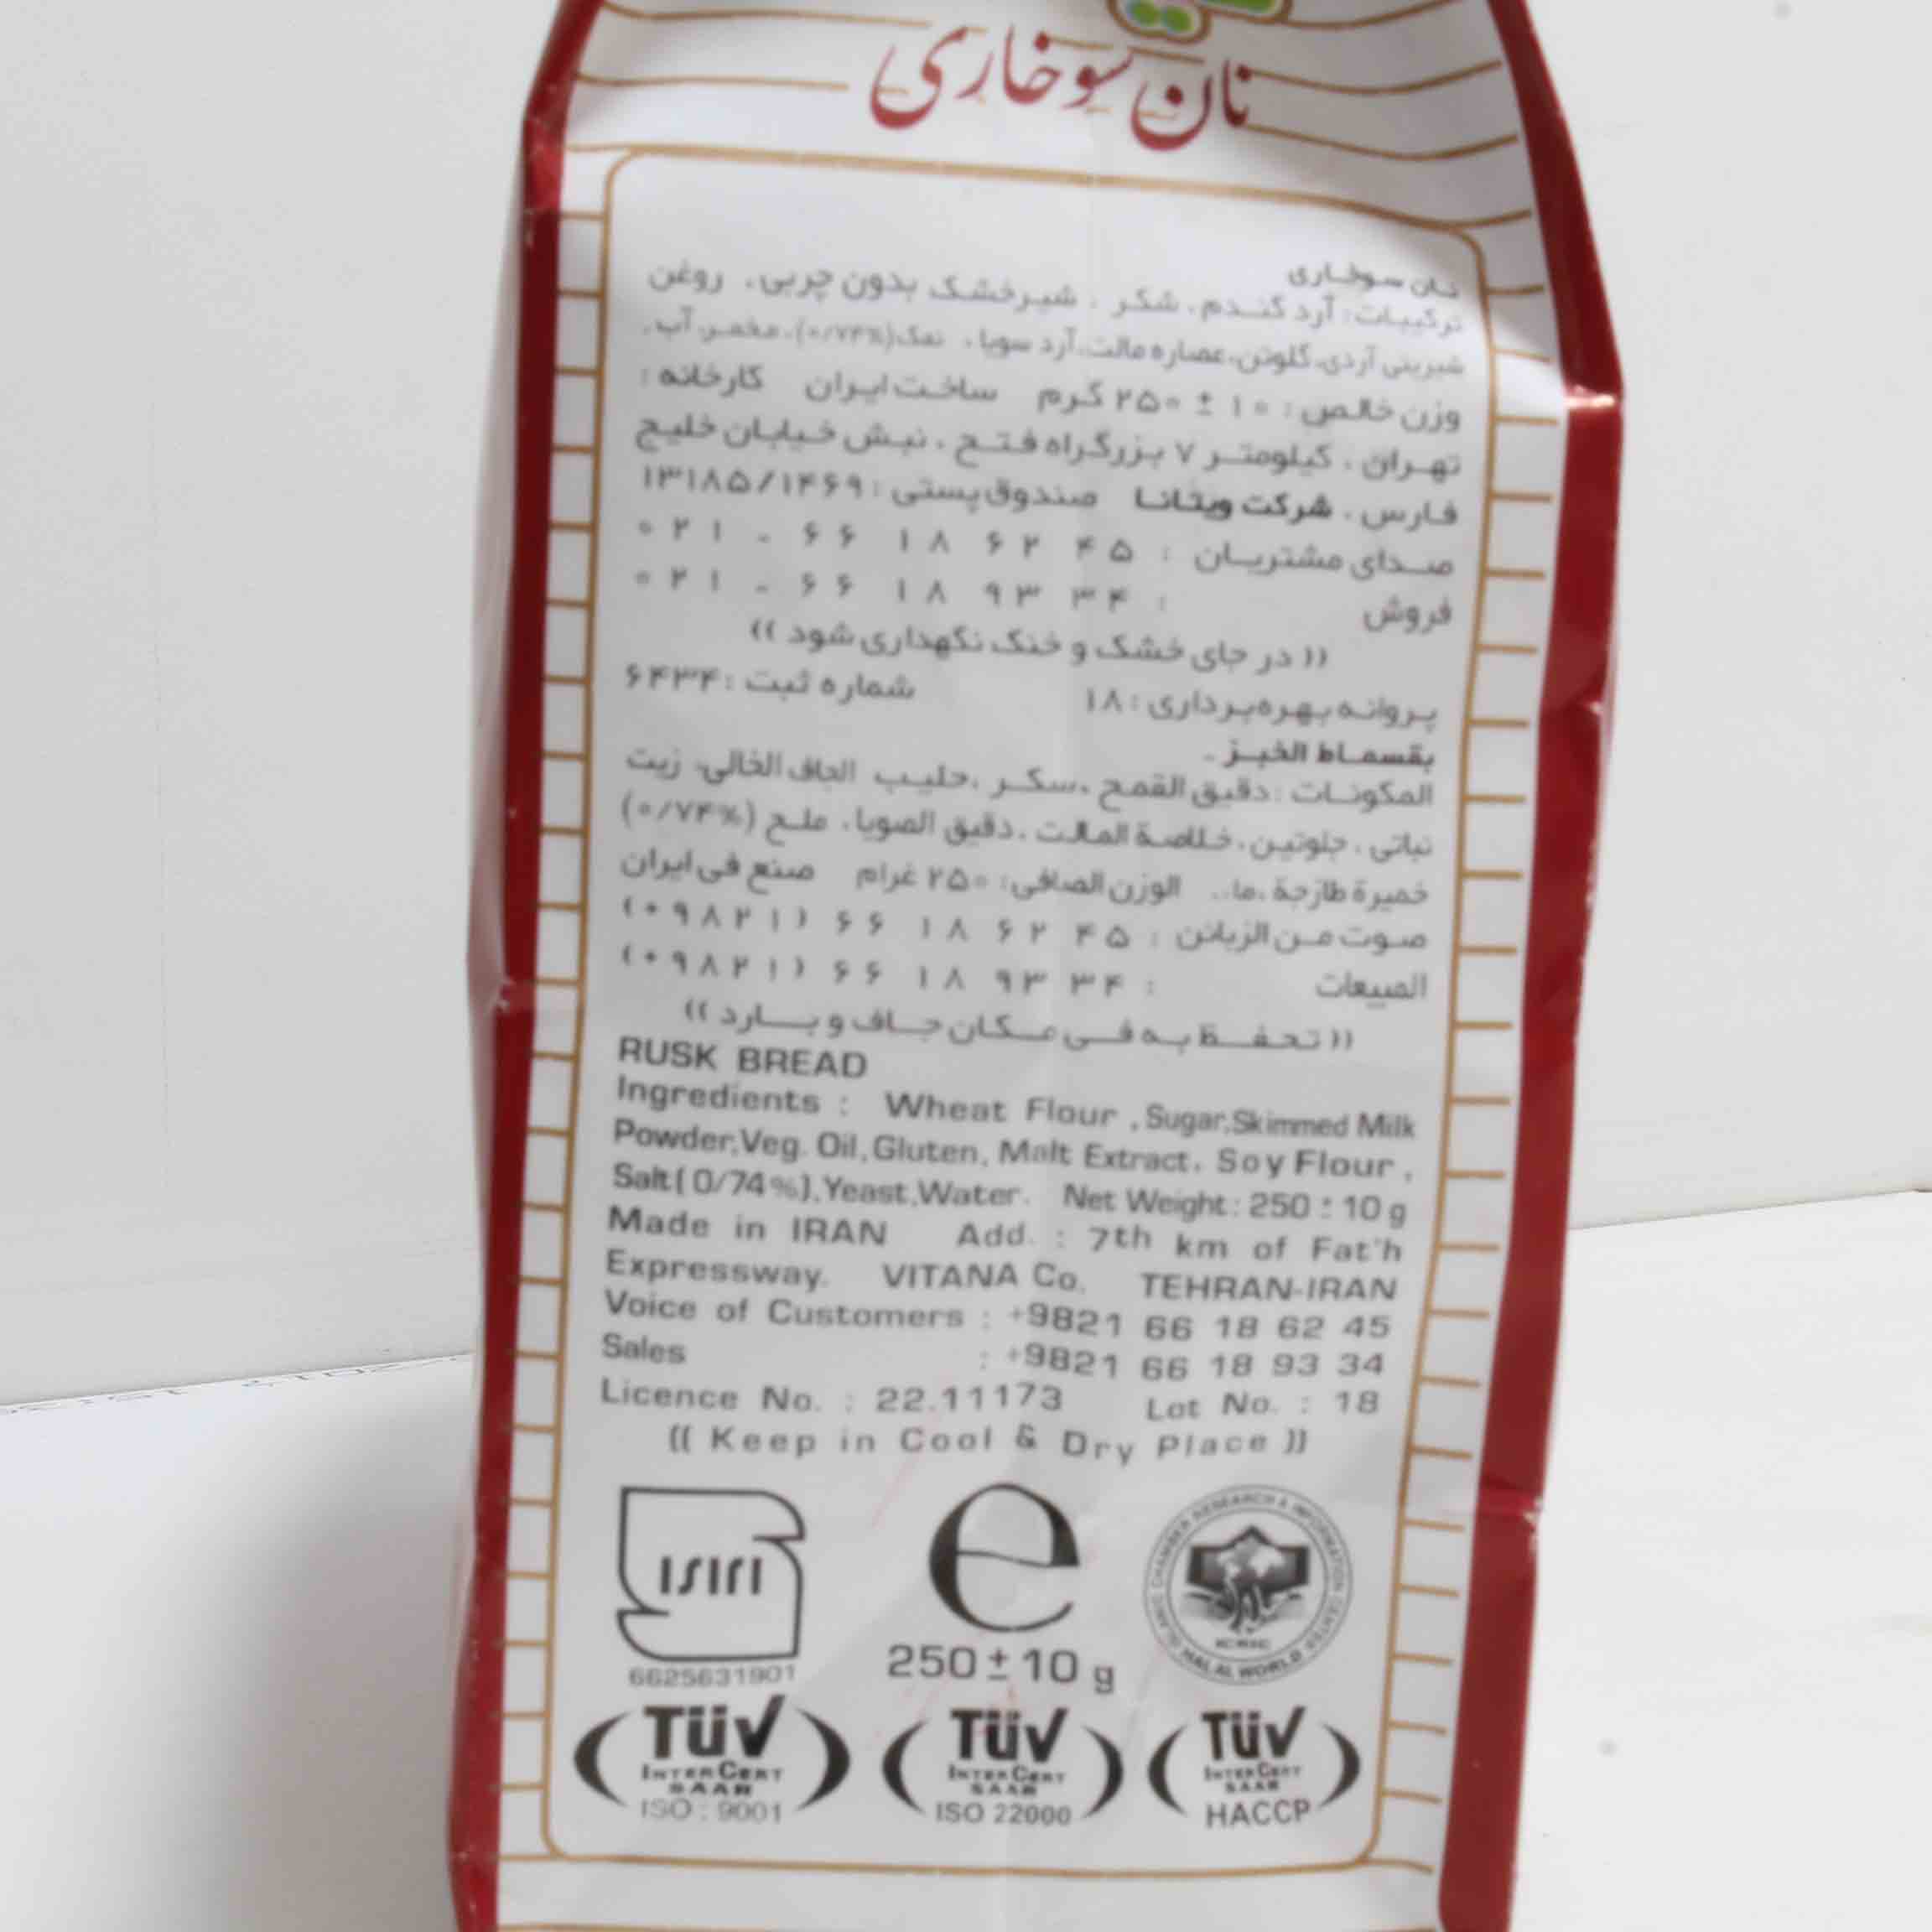 نان سوخاری
نان سوخاری
ترکیبات: آرد گندم، شکر، شیرخشک بدون چربی، روغن
شیرینی آردی، گلوتن، عصاره مالت، آرد سویا، نمک (۰/۷۴%)، مخمر، آب.
وزن خالص: ۱۰ ± ۲۵۰ گرم ساخت ایران کارخانه:
تهران، کیلومتر ۷ بزرگراه فتح، نبش خیابان خلیج
فارس، شرکت ویتانا صندوق پستی: ۱۳۱۸۵/۱۴۶۹
صدای مشتریان : ۰۲۱ - ۶۶ ۱۸ ۶۲ ۴۵
فروش : ۰۲۱ - ۶۶ ۱۸ ۹۳ ۳۴
(( در جای خشک و خنک نگهداری شود ))
پروانه بهره‌برداری: ۱۸ شماره ثبت: ۶۴۳۴
بقسماط الخبز -
المکونات: دقیق القمح، سکر، حلیب الجاف الخالی، زیت
نباتی، جلوتین، خلاصة المالت، دقیق الصویا، ملح (۰/۷۴%)
خمیرة طازجة، ما.. الوزن الصافی: ۲۵۰ غرام صنع فی ایران
صوت من الزبائن : ۴۵ ۶۲ ۱۸ ۶۶ (۹۸۲۱+)
المبیعات : ۳۴ ۹۳ ۱۸ ۶۶ (۹۸۲۱+)
(( تحفظ به فی مکان جاف و بارد ))
RUSK BREAD
Ingredients : Wheat Flour , Sugar,Skimmed Milk
Powder,Veg. Oil,Gluten, Malt Extract, Soy Flour ,
Salt( 0/74%),Yeast,Water. Net Weight: 250 ± 10 g
Made in IRAN Add. : 7th km of Fat'h
Expressway. VITANA Co. TEHRAN-IRAN
Voice of Customers : +9821 66 18 62 45
Sales : +9821 66 18 93 34
Licence No. : 22.11173 Lot No. : 18
(( Keep in Cool & Dry Place ))
ISIRI
6625631901
e
250 ± 10 g
ISLAMIC CHAMBER RESEARCH & INFORMATION CENTER
ICRIC
HALAL WORLD
TÜV
INTERCERT
SAAR
ISO : 9001
TÜV
INTERCERT
SAAR
ISO 22000
TÜV
INTERCERT
SAAR
HACCP